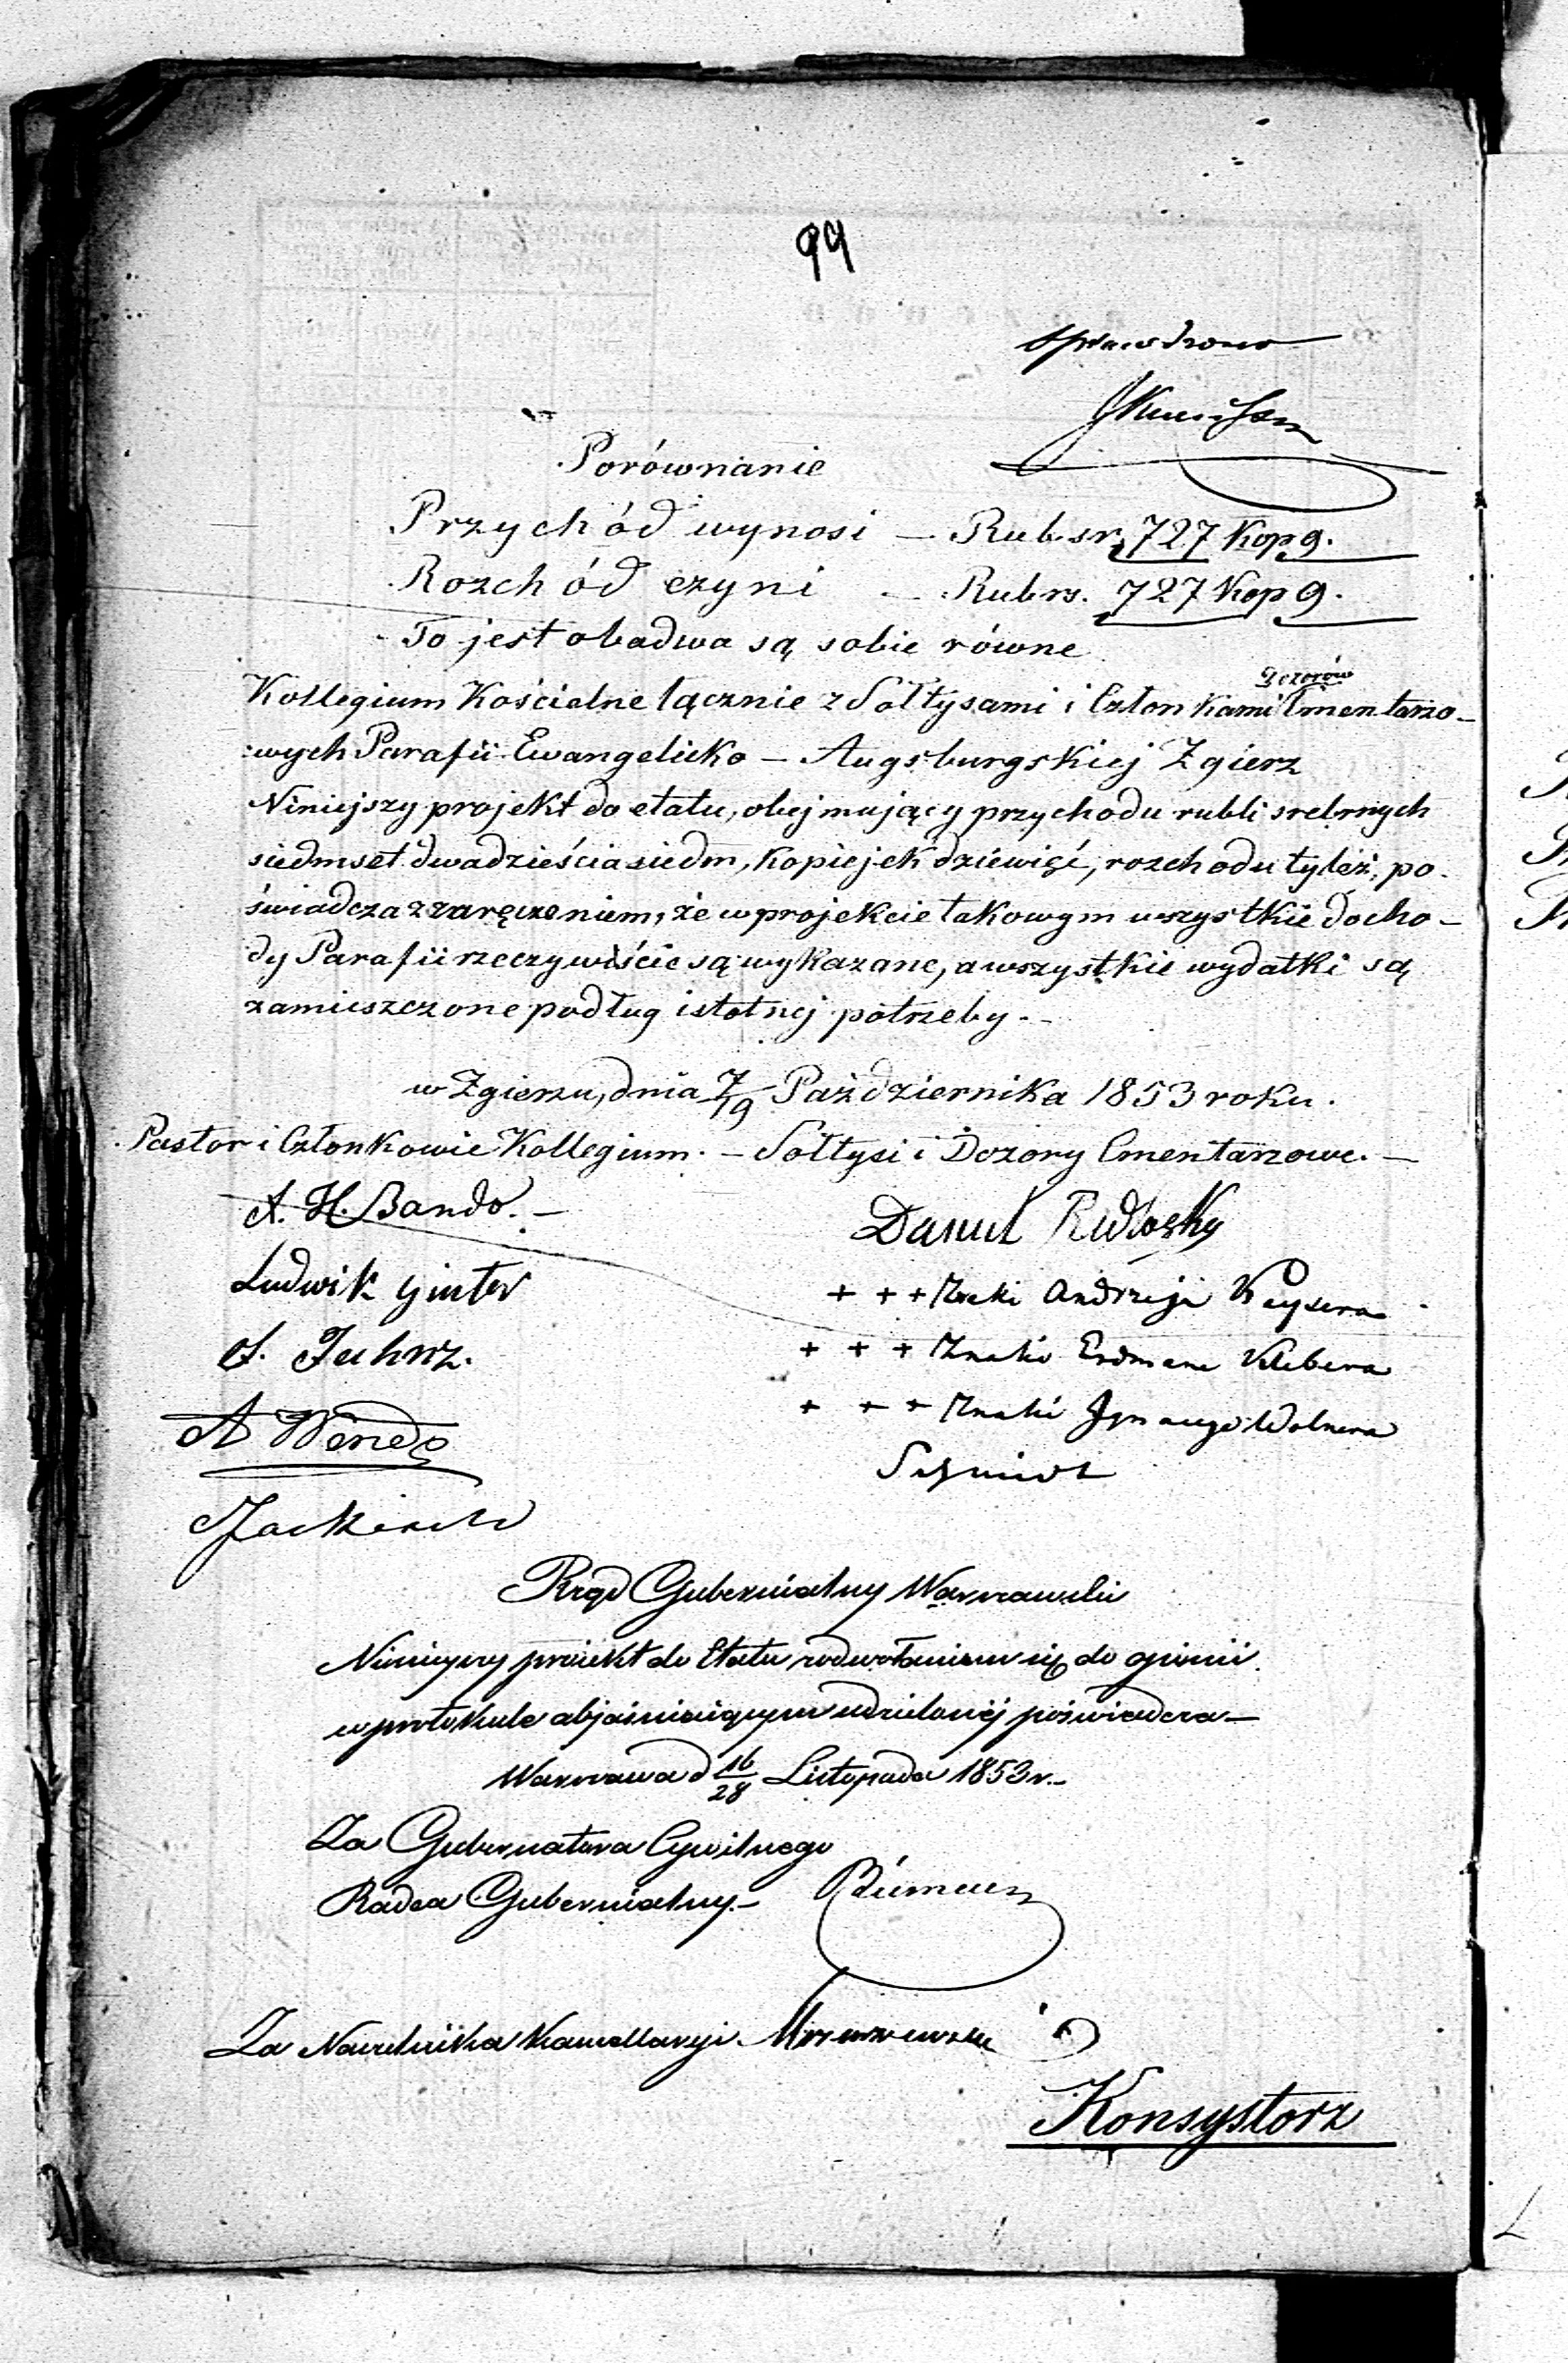 99
sprawdzono
Porównanie
Przychód wynosi — Rub. sr. 727 Kop 9.
Rozchód czyni — Rub rs. 727 Kop 9.
To jest obadwa są sobie równe
dozorów
Kollegium Kościelne łącznie z Sołtysami i Członkami Cmentarzo-
wych Parafii Ewangelicko – Augsburgskiej Zgierz
Niniejszy projekt do etatu, obejmujący przychodu rubli srebrnych
siedmset dwadzieścia siedm, kopiejek dziewięć, rozchodu tyleż, po-
świadcza z zaręczeniem, że w projekcie takowym wszystkie docho-
dy Parafii rzeczywiście są wykazane, a wszystkie wydatki są
zamieszczone podług istotnej potrzeby. –
w Zgierzu, dnia 7/19 Października 1853 roku.
Pastor i Członkowie Kollegium. – Sołtysi i Dozory Cmentarzowe. –
A. H. Bando. –
Ludwik Ginter
A Wende
Daniel
+ + + Znaki Andrzeja Keysera
+ + + Znaki Erdmana Klebera
+ + + Znaki Ignacego Wolnera
Schmidt
Rząd Gubernialny Warszawski
Niniejszy proiekt do Etatu z odwołaniem się do opinii
w protokule objaśniaiącym udzielonéj poświadcza –
Warszawa d 16/28 Listopada 1853 r. –
Za Gubernatora Cywilnego
Radca Gubernialny. –
Za Naczelnika Kancellaryi
Konsystorz